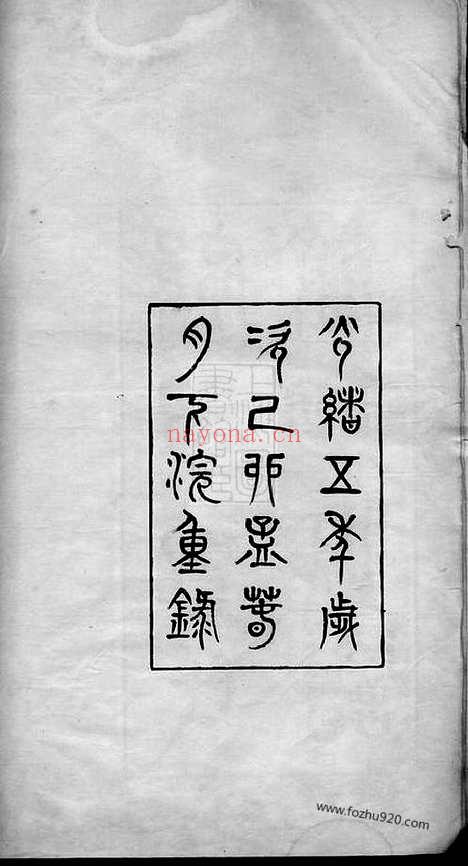 光緒五年歲
次己卯孟春
月下浣重
nayona.cn
www.fozhu920.com